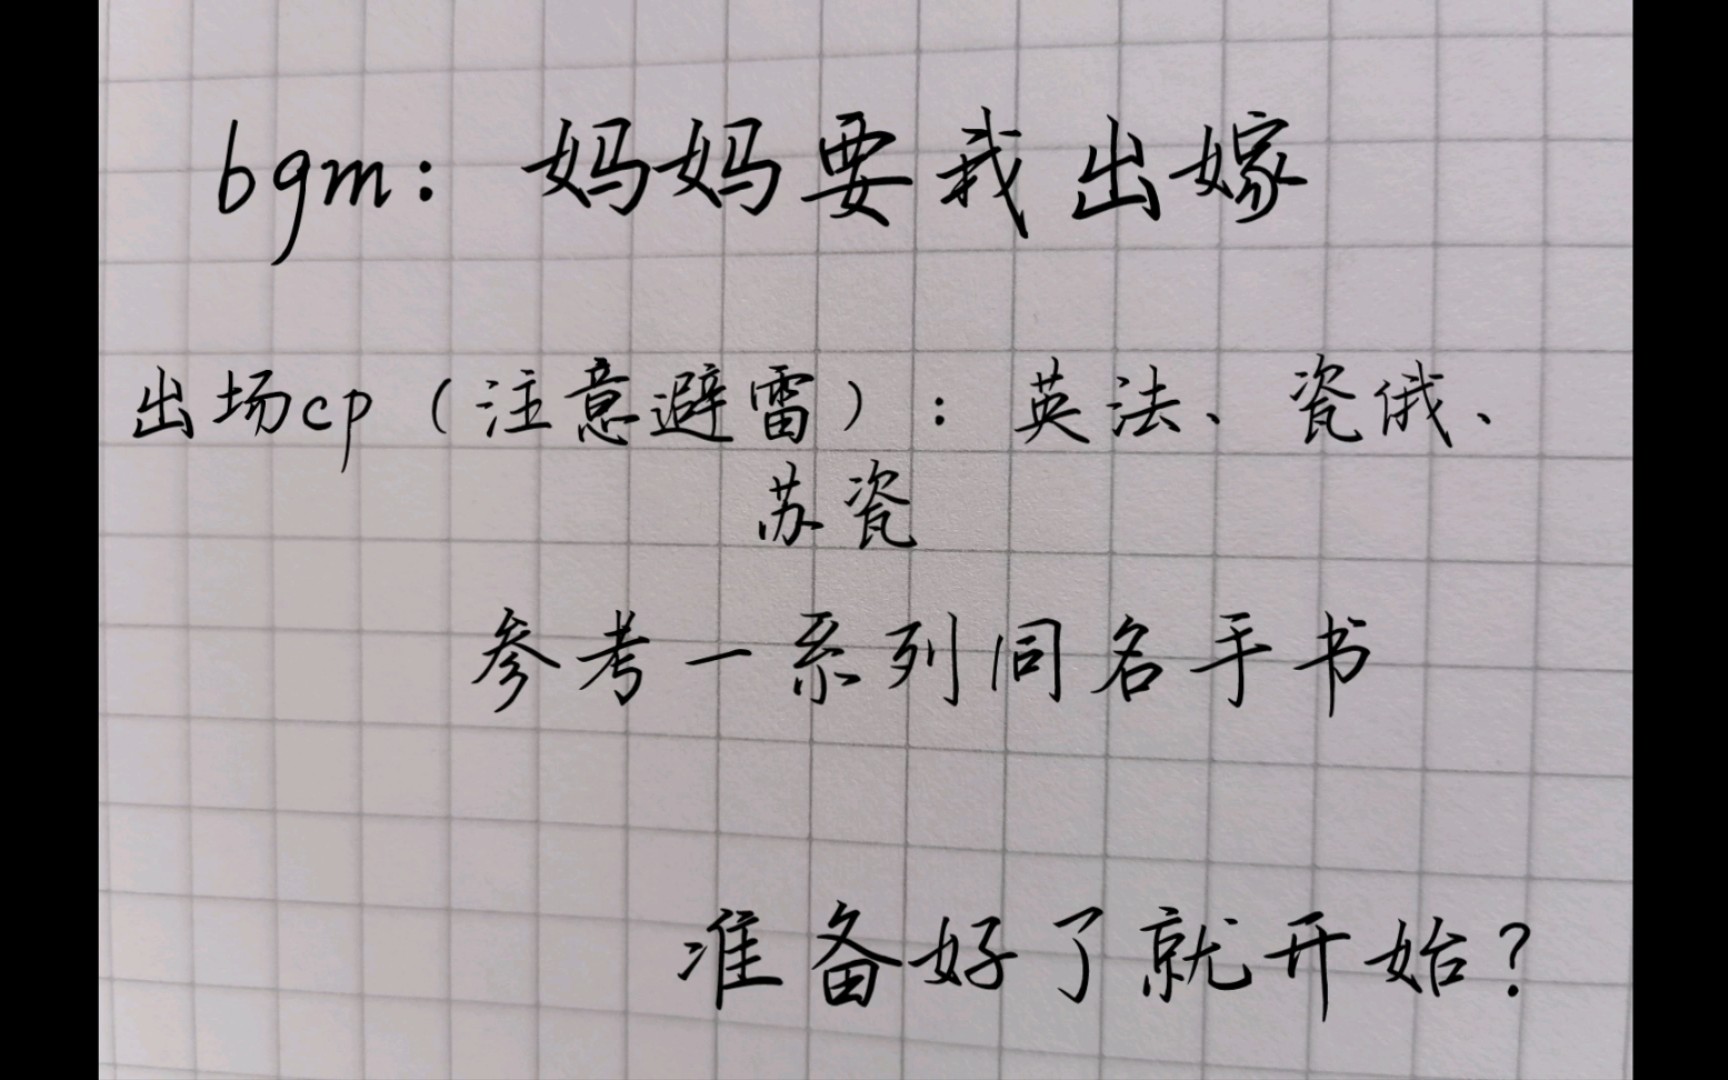 bgm：妈妈要我出嫁
出场cp（注意避雷）：英法、瓷俄、
苏瓷
参考一系列同名手书
准备好了就开始？